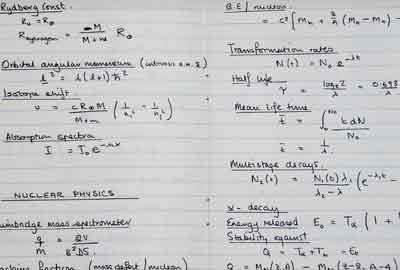 Rydberg Const.
R₀ = R∞
R_hydrogen = M / (M + m) R∞
Orbital angular momentum
l² = l(l+1) ħ²
Isotope shift.
ν = c R∞ M / (M + m) (1/n₁² − 1/n₂²)
Absorption spectra
I = I₀ e^
NUCLEAR PHYSICS
mass spectrometer
q/m = 2V / B²
fraction (mass defect / nucleon)
B.E / nucleon
= c² [Mₙ + (Mₙ − Mₙ) −
Transformation rates
N(t) = N₀ e^−λt
Half life
τ = logₑ2 / λ = 0.693 / λ
Mean life time
t̄ = ∫₀^N₀ t dN / N₀
t̄ = 1/λ
Multistage decays.
N₂(t) = N₁(0) λ₁ / (λ₂ − λ) (e^−λ₁t −
α − decay
Energy released E₀ = Tα (1 +
Stability against
Q = Tα + T = E₀
Q = M (Z, A) − M (Z−2, A−4)